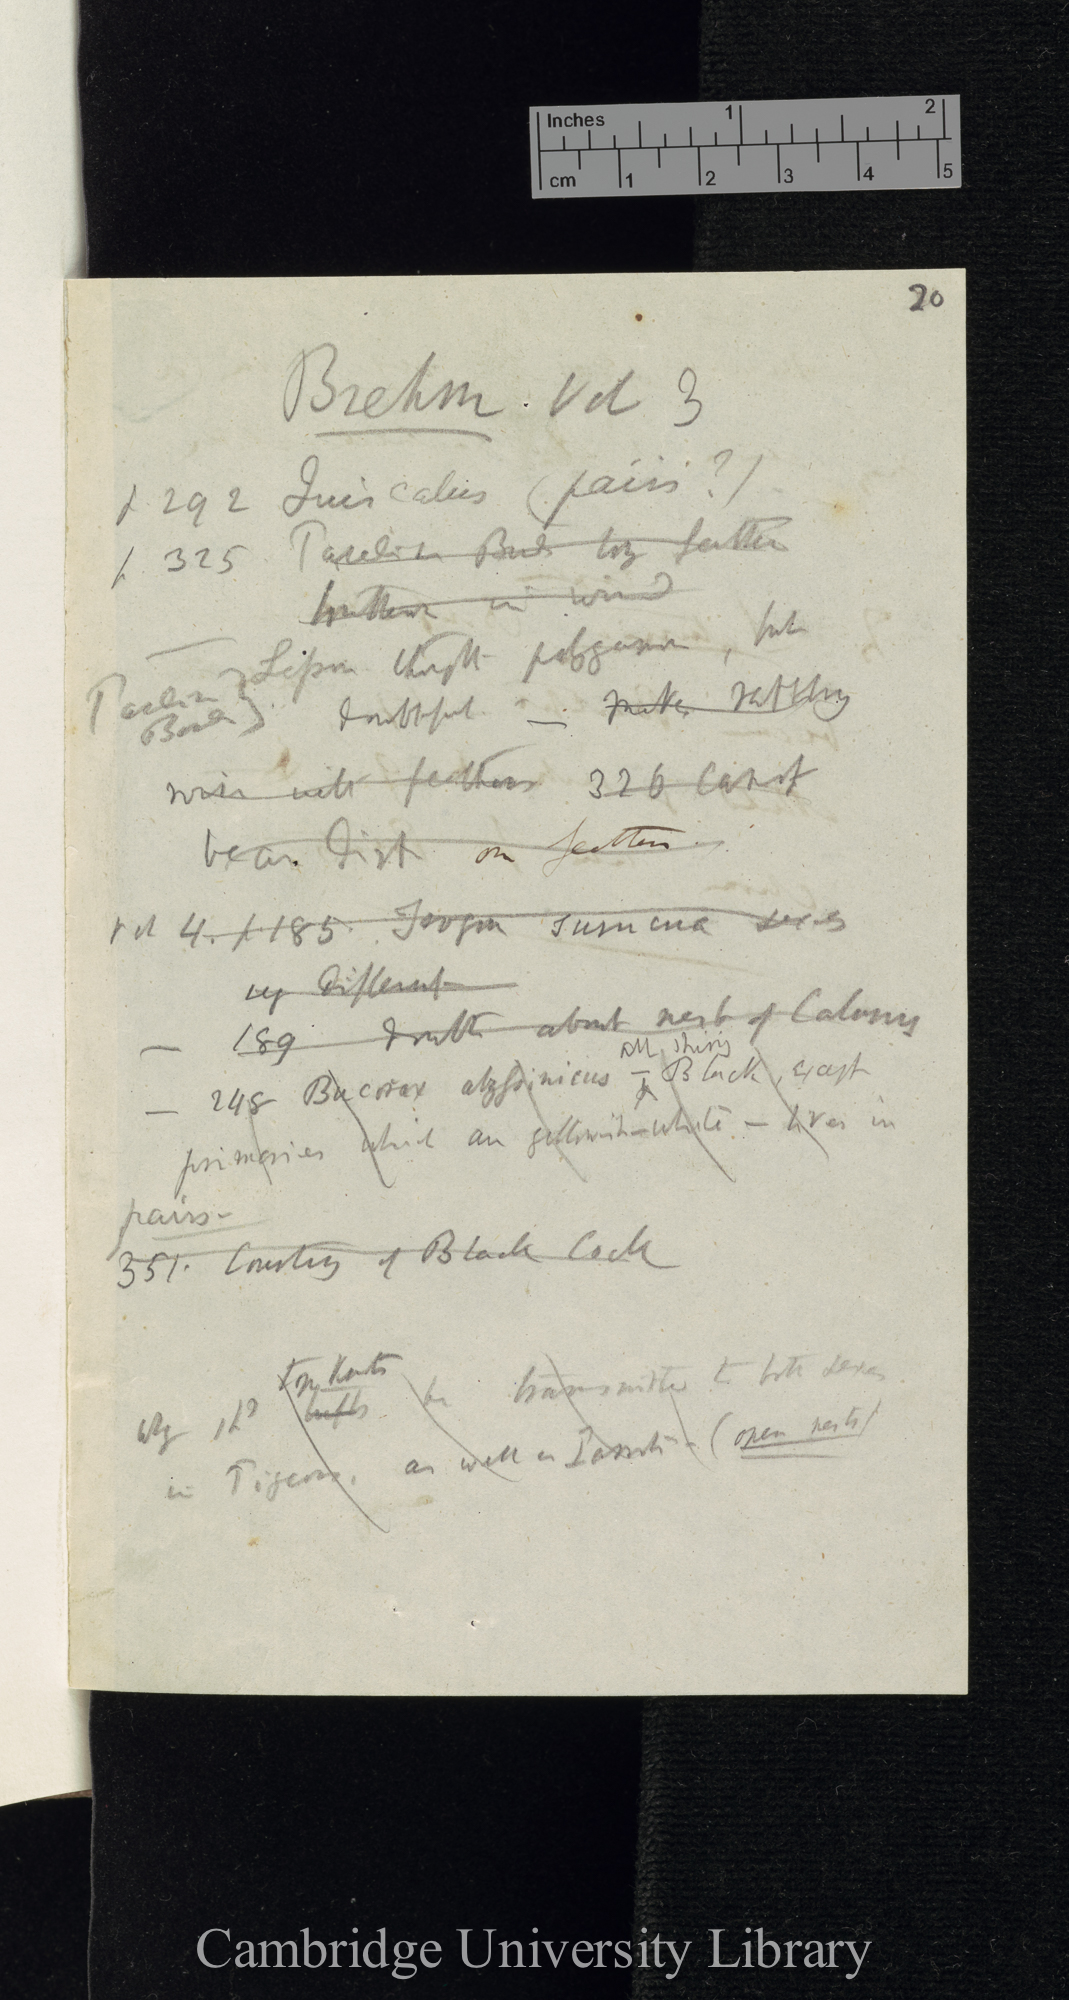 Inches 1 2
cm 1 2 3 4 5
20
Brehm. Vol 3
p 292 Quiscalus (pairs?)
p. 325 Paradise Birds long feathers
in wind
Paradise Birds } Lesson thought polygamous, but
doubtful — makes rattling
noise with feathers 326 cannot
bear dirt on feathers.
Vol 4. p 185. Trogon surucua sexes
very different
— 189 doubts about nest of Colasus
— 248 Bucorax abyssinicus — all shining Black, except
primaries which are yellowish-white — lives in
pairs —
351. Courting of Black Cock
Why shd top knots tufts be transmitted to both sexes
in Pigeons, as well as Parrots — (open nests)
Cambridge University Library